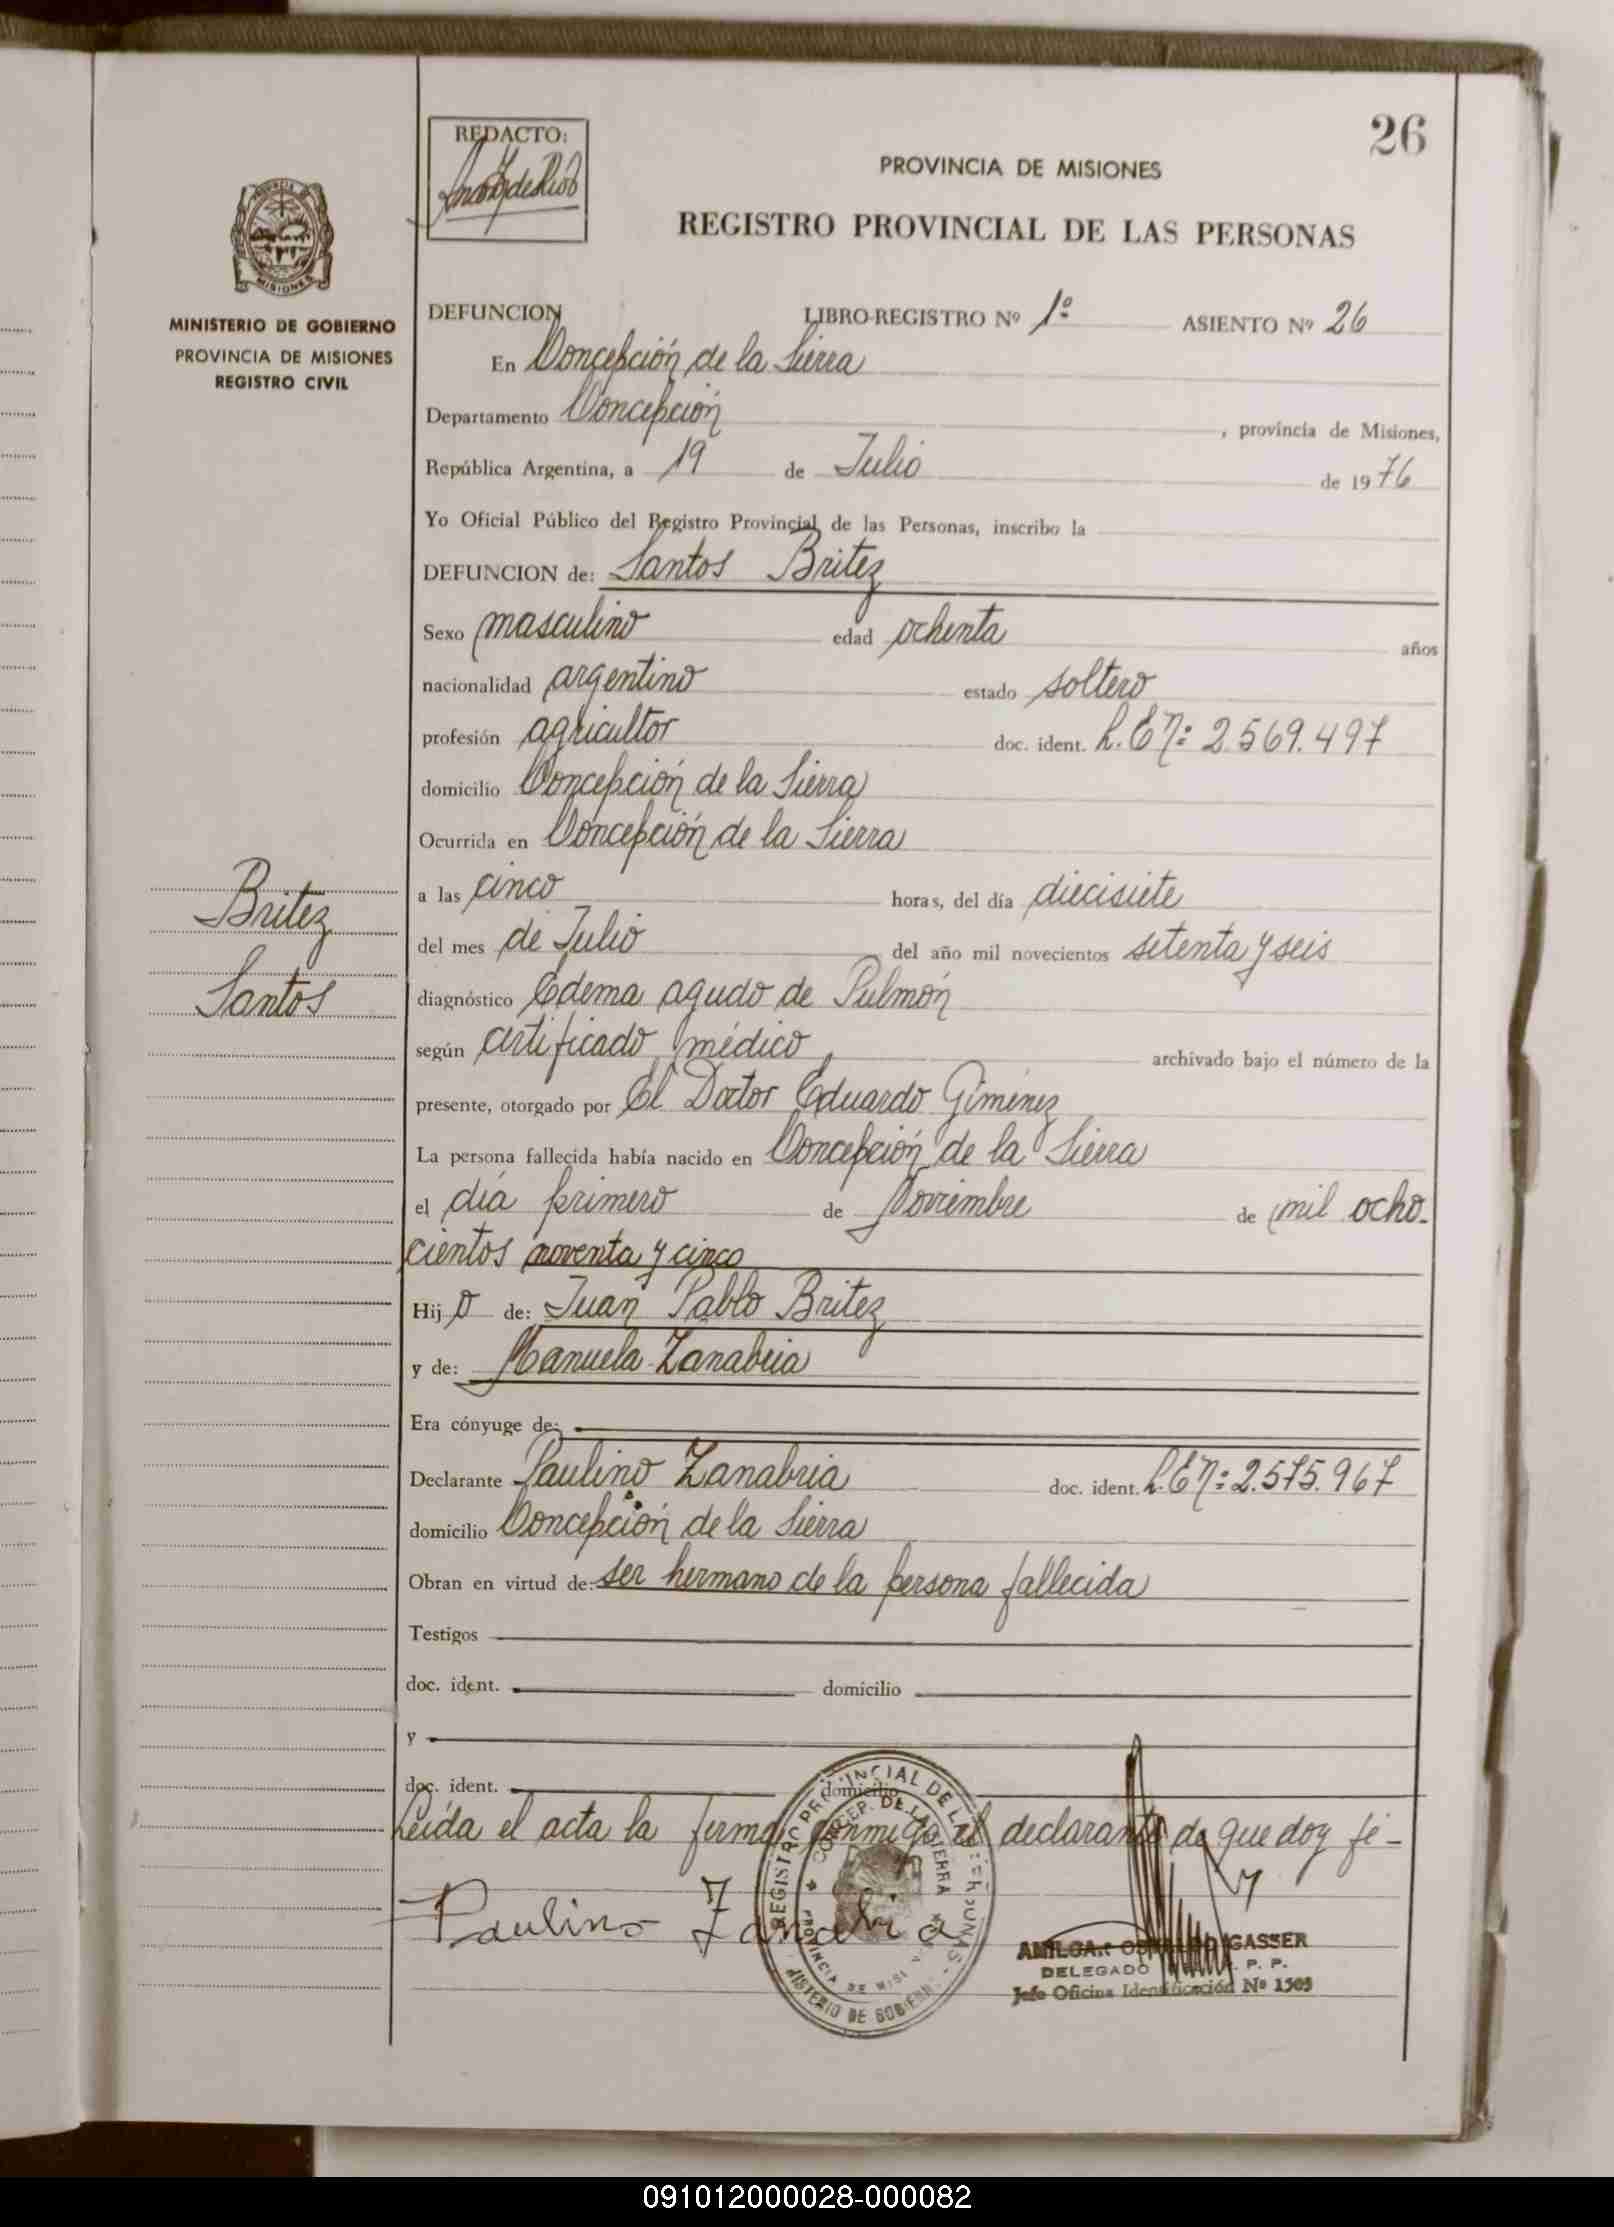 26
REDACTO:
PROVINCIA DE MISIONES
REGISTRO PROVINCIAL DE LAS PERSONAS
MISIONES
MINISTERIO DE GOBIERNO
PROVINCIA DE MISIONES
REGISTRO CIVIL
DEFUNCION LIBRO-REGISTRO Nº 1º ASIENTO Nº 26
En Concepción de la Sierra
Departamento Concepción , provincia de Misiones,
República Argentina, a 19 de Julio de 1976
Yo Oficial Público del Registro Provincial de las Personas, inscribo la
DEFUNCION de: Santos Britez
Sexo masculino edad ochenta años
nacionalidad argentino estado soltero
profesión agricultor doc. ident. L.E.Nº: 2.569.497
domicilio Concepción de la Sierra
Ocurrida en Concepción de la Sierra
a las cinco horas, del día diecisiete
del mes de Julio del año mil novecientos setenta y seis
Britez
Santos
diagnóstico Edema agudo de Pulmón
según certificado médico archivado bajo el número de la
presente, otorgado por El Doctor Eduardo Giménez
La persona fallecida había nacido en Concepción de la Sierra
el día primero de Noviembre de mil ocho-
cientos noventa y cinco
Hijo de: Juan Pablo Britez
y de: Manuela Zanabria
Era cónyuge de:
Declarante Paulino Zanabria doc. ident. L.E.Nº: 2.575.967
domicilio Concepción de la Sierra
Obran en virtud de: ser hermano de la persona fallecida
Testigos
doc. ident. domicilio
y
doc. ident. domicilio
Leída el acta la firma conmigo el declarante de que doy fé-
Paulino Zanabria
REGISTRO PROVINCIAL DE LAS PERSONAS
CONCEP. DE LA SIERRA
PROVINCIA DE MISIONES
MINISTERIO DE GOBIERNO
AMILCAR OSVALDO GASSER
DELEGADO R. P. P.
Jefe Oficina Identificación Nº 1505
091012000028-000082